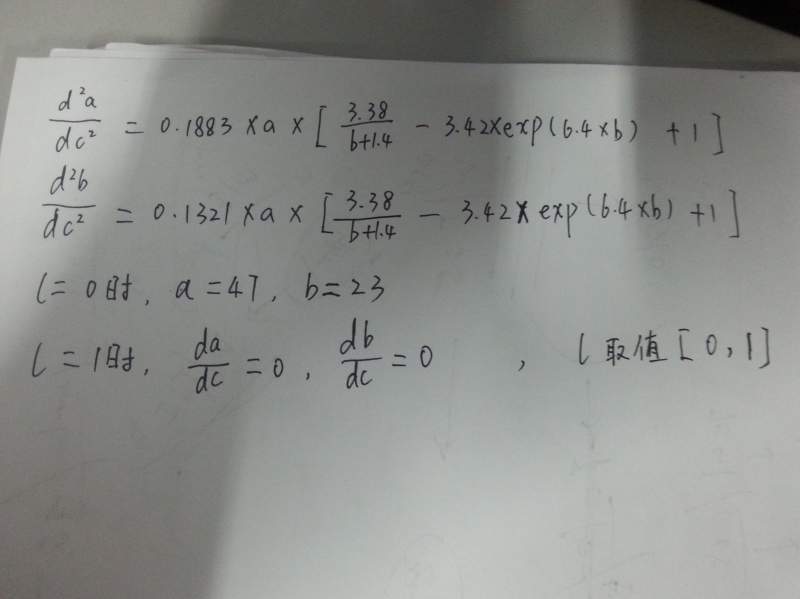 d²a/dc² = 0.1883 × a × [ 3.38/(b+1.4) - 3.42×exp(6.4×b) + 1 ]
d²b/dc² = 0.1321 × a × [ 3.38/(b+1.4) - 3.42×exp(6.4×b) + 1 ]
l = 0时, a = 47, b = 23
l = 1时, da/dc = 0, db/dc = 0 , l 取值 [0,1]